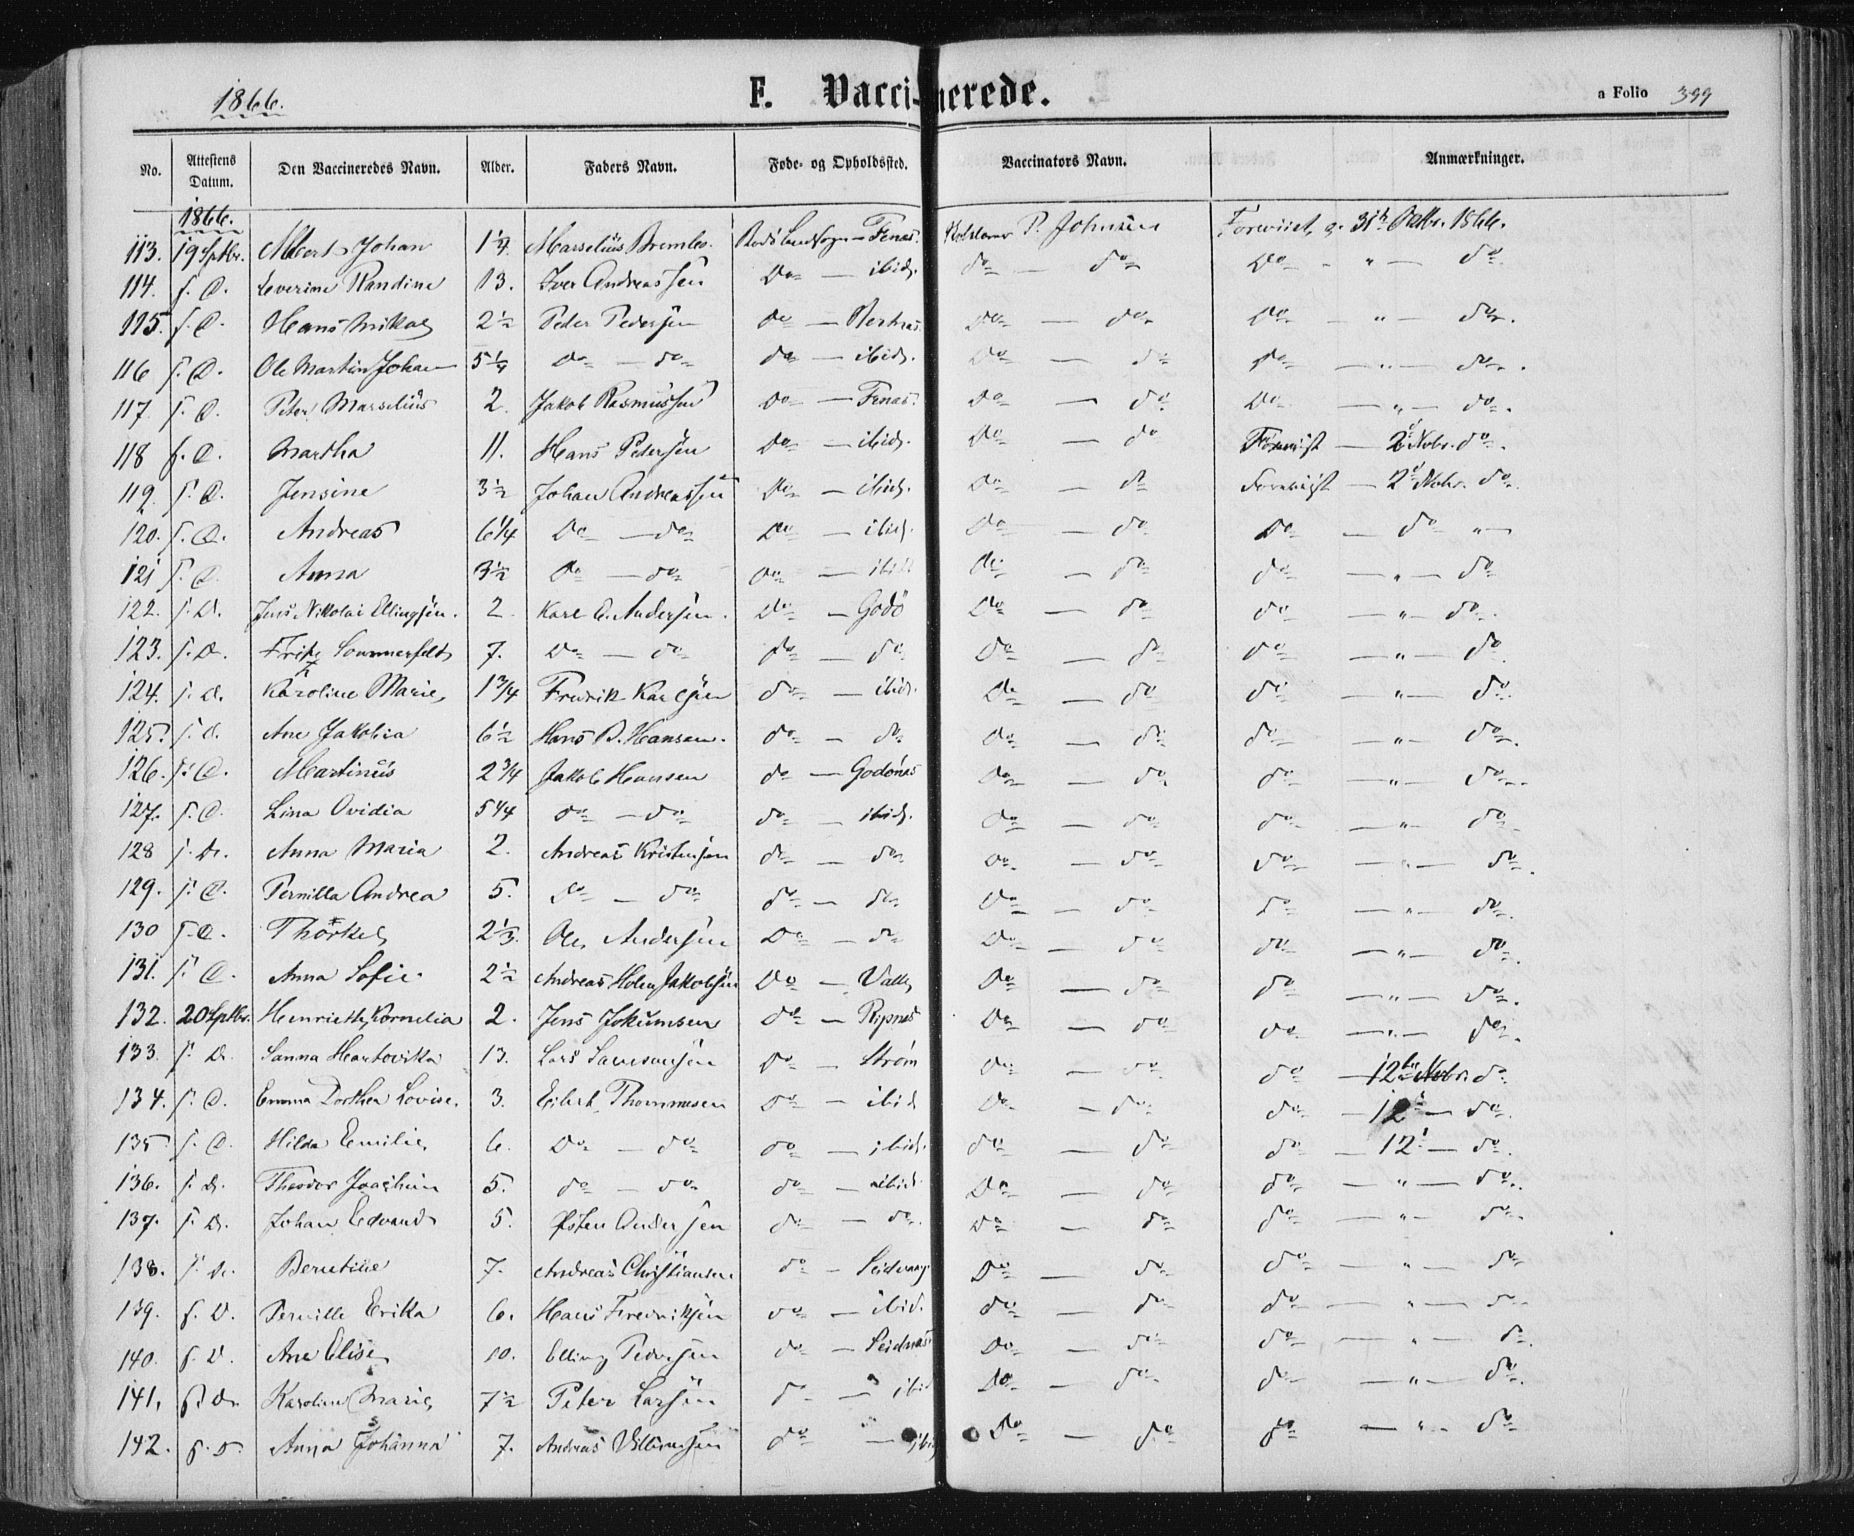 1866. F. Vaccinerede. a Folio 399
No. Attestens Datum. Den Vaccineredes Navn. Alder. Faders Navn. Føde- og Opholdssted. Vaccinators Navn. Anmærkninger.
1866.
113. 19 Sptbr. Albert Johan 1¼ Marselius Bremles. Bodø Landsogn — Fenæs. Klokkerer P. Johnsen Foreviist, a. 31te Oktbr. 1866.
114. s. D. Severine Randine 13. Iver Andreassen Do — ibid. do — do Do - " — do
115. s. D. Hans Mikal 2½ Peder Pedersen do — do — do Do - " — do.
116 s. D. Ole Martin Johan 5¼ do — do do — ibid. Do — do do — " — do.
117. s. D. Peter Marselius 2. Jakob Rasmussen Do — Fenæs. Do — do Do — " — do.
118 s. D. Martha 11. Hans Pedersen Do — ibid. Do — do Foreviist — 2d Nobr. do.
119. s. D. Jensine 3½ Johan Andreassen Do — ibid. Do — do Foreviist — 2d Nobr. do.
120. s. D. Andreas 6¼ Do — do Do — ibid. Do — do Do — do "
121 s. D. Anna 3½ do — do do — ibid do — do do — " — do
122. s. D. Jens Nikolai Ellingsen. 2 Karl A. Andersen. Do — Godø Do — do do — " — do.
123. s. D. Fritz Sommerfeldt 7. Do — do do — do Do — do do — " — do
124. s. D. Karoline Marie 1¾ Fredrik Karlsen do — ibid. Do — do do — " — do.
125. s. d. Ane Jakobia 6½ Hans B. Hansen. do — do. do — do do — " — do.
126. s. D. Martinus 2¾ Jakob Hansen do — Godønæs do — do do — " — do.
127. s. D. Lina Ovidia 5¼ do — do do — ibid. do — do do — " — do.
128 s. D. Anna Maria 2. Andreas Kristensen do — do Do — do do — " — do.
129. s. D. Pernilla Andrea 5. do — do do — do Do — do do — " — do.
130 s. D. Thorkel 2⅓. Ole Andersen Do — do Do — do do — " — do.
131. s. D. Anna Sofie. 2½ Andreas Holm Jakobsen Do — Valle Do — do do — " — do.
132. 20 Sptbr. Henriette Kornelia 2. Jens Jokumsen do — Ripnes Do — do do — " — do.
133. s. D. Sanna Hartvika 13. Lars do — Strøm do — do do — 12te Nobr. do
134. s. D. Emma Dorthea Lovise. 3. Eilert Thommesen do — ibid Do — do do — 12 — do.
135 s. D. Hilda Emilie 6. Do — do do — ibid. do — do do — 12 — do.
136. s. D. Theodor Joachim 5. do — do do — ibid. Do — do do — " — do.
137. s. D. Johan Edvard 5. Østen Andersen do — do. Do — do do — " — do.
138. s. D. Berntine 7. Andreas Christiansen do — Do — do do — " — do
139. s. D. Pernille Erika 6. Hans Fredriksen do — ibid. do — do do — " — do
140. s. D. Ane Elise 10. Elling Pedersen do — Seidnæs Do — do do — " — do.
141. s. D. Karoline Marie 7½ Peter Larsen do — ibid Do — do do — " — do.
142. s. D. Anna Johanna 7. Andreas Villumsen do — ibid Do — do do — " — do